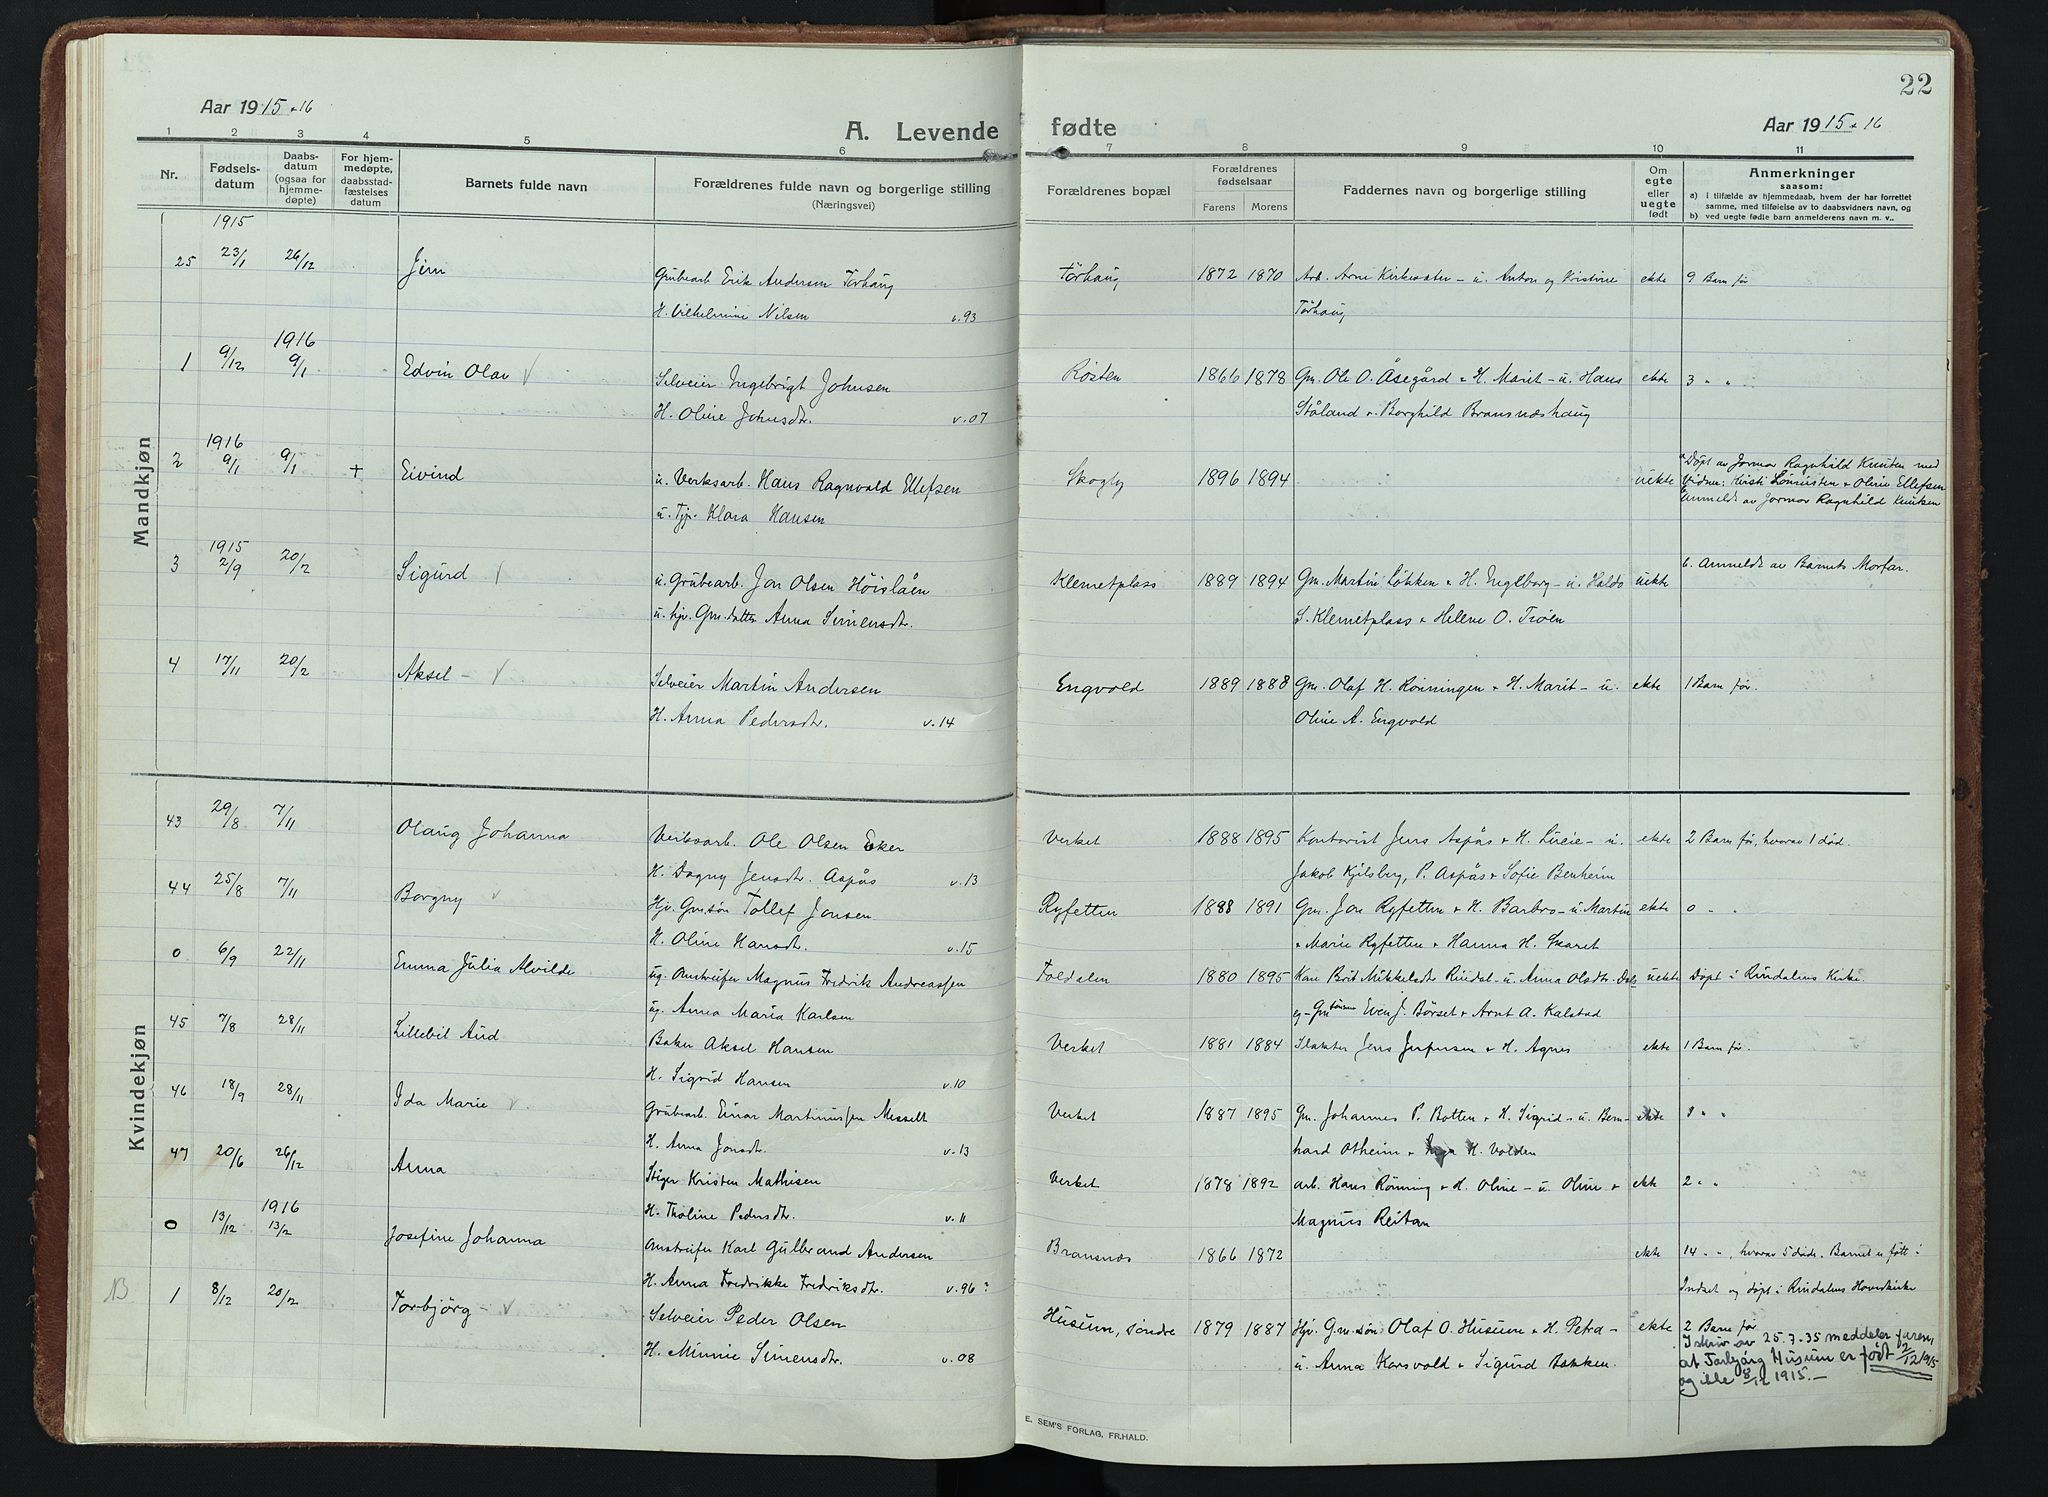 22
Aar 1915 + 16
A. Levende fødte
Aar 1915 + 16
1 2 3 4 5 6 7 8 9 10 11
Nr.
Fødsels-datum
Daabs-datum (ogsaa for hjemme-døpte)
For hjem-medøpte, daabsstad-fæstelses datum
Barnets fulde navn
Forældrenes fulde navn og borgerlige stilling
(Næringsvei)
Forældrenes bopæl
Forældrenes fødselsaar
Farens Morens
Faddernes navn og borgerlige stilling
Om egte eller uegte født
Anmerkninger
saasom:
a) i tilfælde av hjemmedaab, hvem der har forrettet
samme, med tilføielse av to daabsvidners navn, og
b) ved uegte fødte barn anmelderens navn m. v..
Mandkjøn
1915
25 23/1 26/12 Jim Grubearb. Erik Andersen Törhaug Törhaug 1872 1870 Arb. Arne Kirkesæter - u. Anton og Kristine ekte 9 Barn før
H. Vilhelmine Nilsen v. 93 Törhaug
1916
1 9/12 9/1 Edvin Olav Selveier Ingebrigt Johnsen Røsten 1866 1878 Gm. Ole O. Åsegård + H. Marit - u. Hans ekte 3 " "
H. Oline Johnsdtr. v. 07 Ståland + Borghild Bransnæshaug
1916
2 9/1 9/1 + Eivind u. Verksarb. Hans Ragnvald Ellefsen Skogly 1896 1894 uekte Døpt av Jormor Ragnhild Knutsen med
u. Tjp. Klara Hansen Vidner: Kirsti + Oline Ellefsen
Anmeldt av Jormor Ragnhild Knutsen
1915
3 2/9 20/2 Sigurd u. Grubearb. Jon Olsen Höislåen Klemetplass 1889 1894 Gm. Martin Løkken + H. Ingeborg - u. Haldo uekte b. Anmeldt av Barnets Morfar.
u. hjv. Gm. datter Anna Simensdtr. S. Klemetplass + Helene O. Trøen
4 17/11 20/2 Aksel Selveier Martin Andersen Engvold 1889 1888 Gm. Olaf H. Rønningen + H. Marit - u. ekte 1 Barn før.
H. Anna Pedersdtr. v. 14 Oline A. Engvold
Kvindekjøn
43 29/8 7/11 Olaug Johanna Verksarb. Ole Olsen Eker Verket 1888 1895 Kontorist Jens Aspås + H. Lucie - u. ekte 2 Barn før, hvorav 1 død.
H. Dagny Jensdtr. Aspås v. 13 Jakob Kjelsberg, P. Aspås + Sofie Benheim
44 25/8 7/11 Borgny Hjv. Gm. søn Tollef Jonsen Ryfetten 1888 1891 Gm. Jon Ryfetten + H. Barbro - u. Martin ekte 0 " "
H. Oline Hansdtr. v. 15 + Marie Ryfetten + Hanna H. Skaret
0 6/9 22/11 Emma Julia Alvilde ug. Omstreifer Magnus Fredrik Andreassen Foldalen 1880 1895 Kone Brit Mikkelsdtr Rindal - u. Anna Olsdtr. Dal uekte Døpt i Rindalens Kirke.
ug. Anna Maria Karlsen og Gm sønnene Even J. Børset + Arnt A. Kalstad
45 7/8 28/11 Lillebil Aud Baker Aksel Hansen Verket 1881 1884 Slakter Jens Jespersen + H. Agnes ekte 1 Barn før.
H. Sigrid Hansen v. 10
46 18/9 28/11 Ida Marie Grubearb. Einar Martinussen Messelt Verket 1887 1895 Gm. Johannes P. Botten + H. Sigrid - u. Bern- ekte 1 " "
H. Anna Jonsdtr. v. 13 hard Otheim + Inga H. Volden
47 20/6 26/12 Anna Stiger Kristen Mathisen Verket 1878 1892 arb. Hans Rønning + H. Oline - u. Oline + ekte 2 " "
H. Tholine Pedersdtr. v. 11 Magnus Reitan
1916
0 13/12 13/2 Josefine Johanna Omstreifer Karl Gulbrand Andersen Bransnæs 1866 1872 ekte 14 " ", hvorav 5 døde. Barnet u født i
H. Anna Fredrikke Fredriksdtr. v. 96? Indset og døpt i Rindalens Hovedkirke
B 1 8/12 20/2 Torbjörg Selveier Peder Olsen Husum, søndre 1879 1887 Hjv. Gm søn Olaf O. Husum + H. Petra - ekte 2 Barn før
H. Minnie Simensdtr. v. 08 u. Anna Korsvold + Sigurd Bekken.
I skriv av 25.7.35 meddeler faren,
at Torbjørg Husum er født 2/12 1915
og ikke 8/12 1915. -
E. SEM'S FORLAG, FR.HALD.